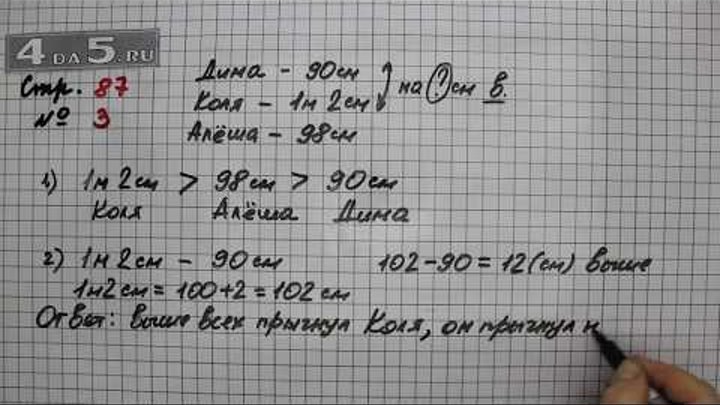 4 DA 5.RU
Стр. 87
№ 3
Дима - 90см
Коля - 1м 2см
на ? см в.
Алёша - 98см
1) 1м 2см > 98см > 90см
Коля Алёша Дима
2) 1м 2см - 90см
102-90 = 12(см) выше
1м2см = 100+2 = 102 см
Ответ: выше всех прыгнул Коля, он прыгнул н